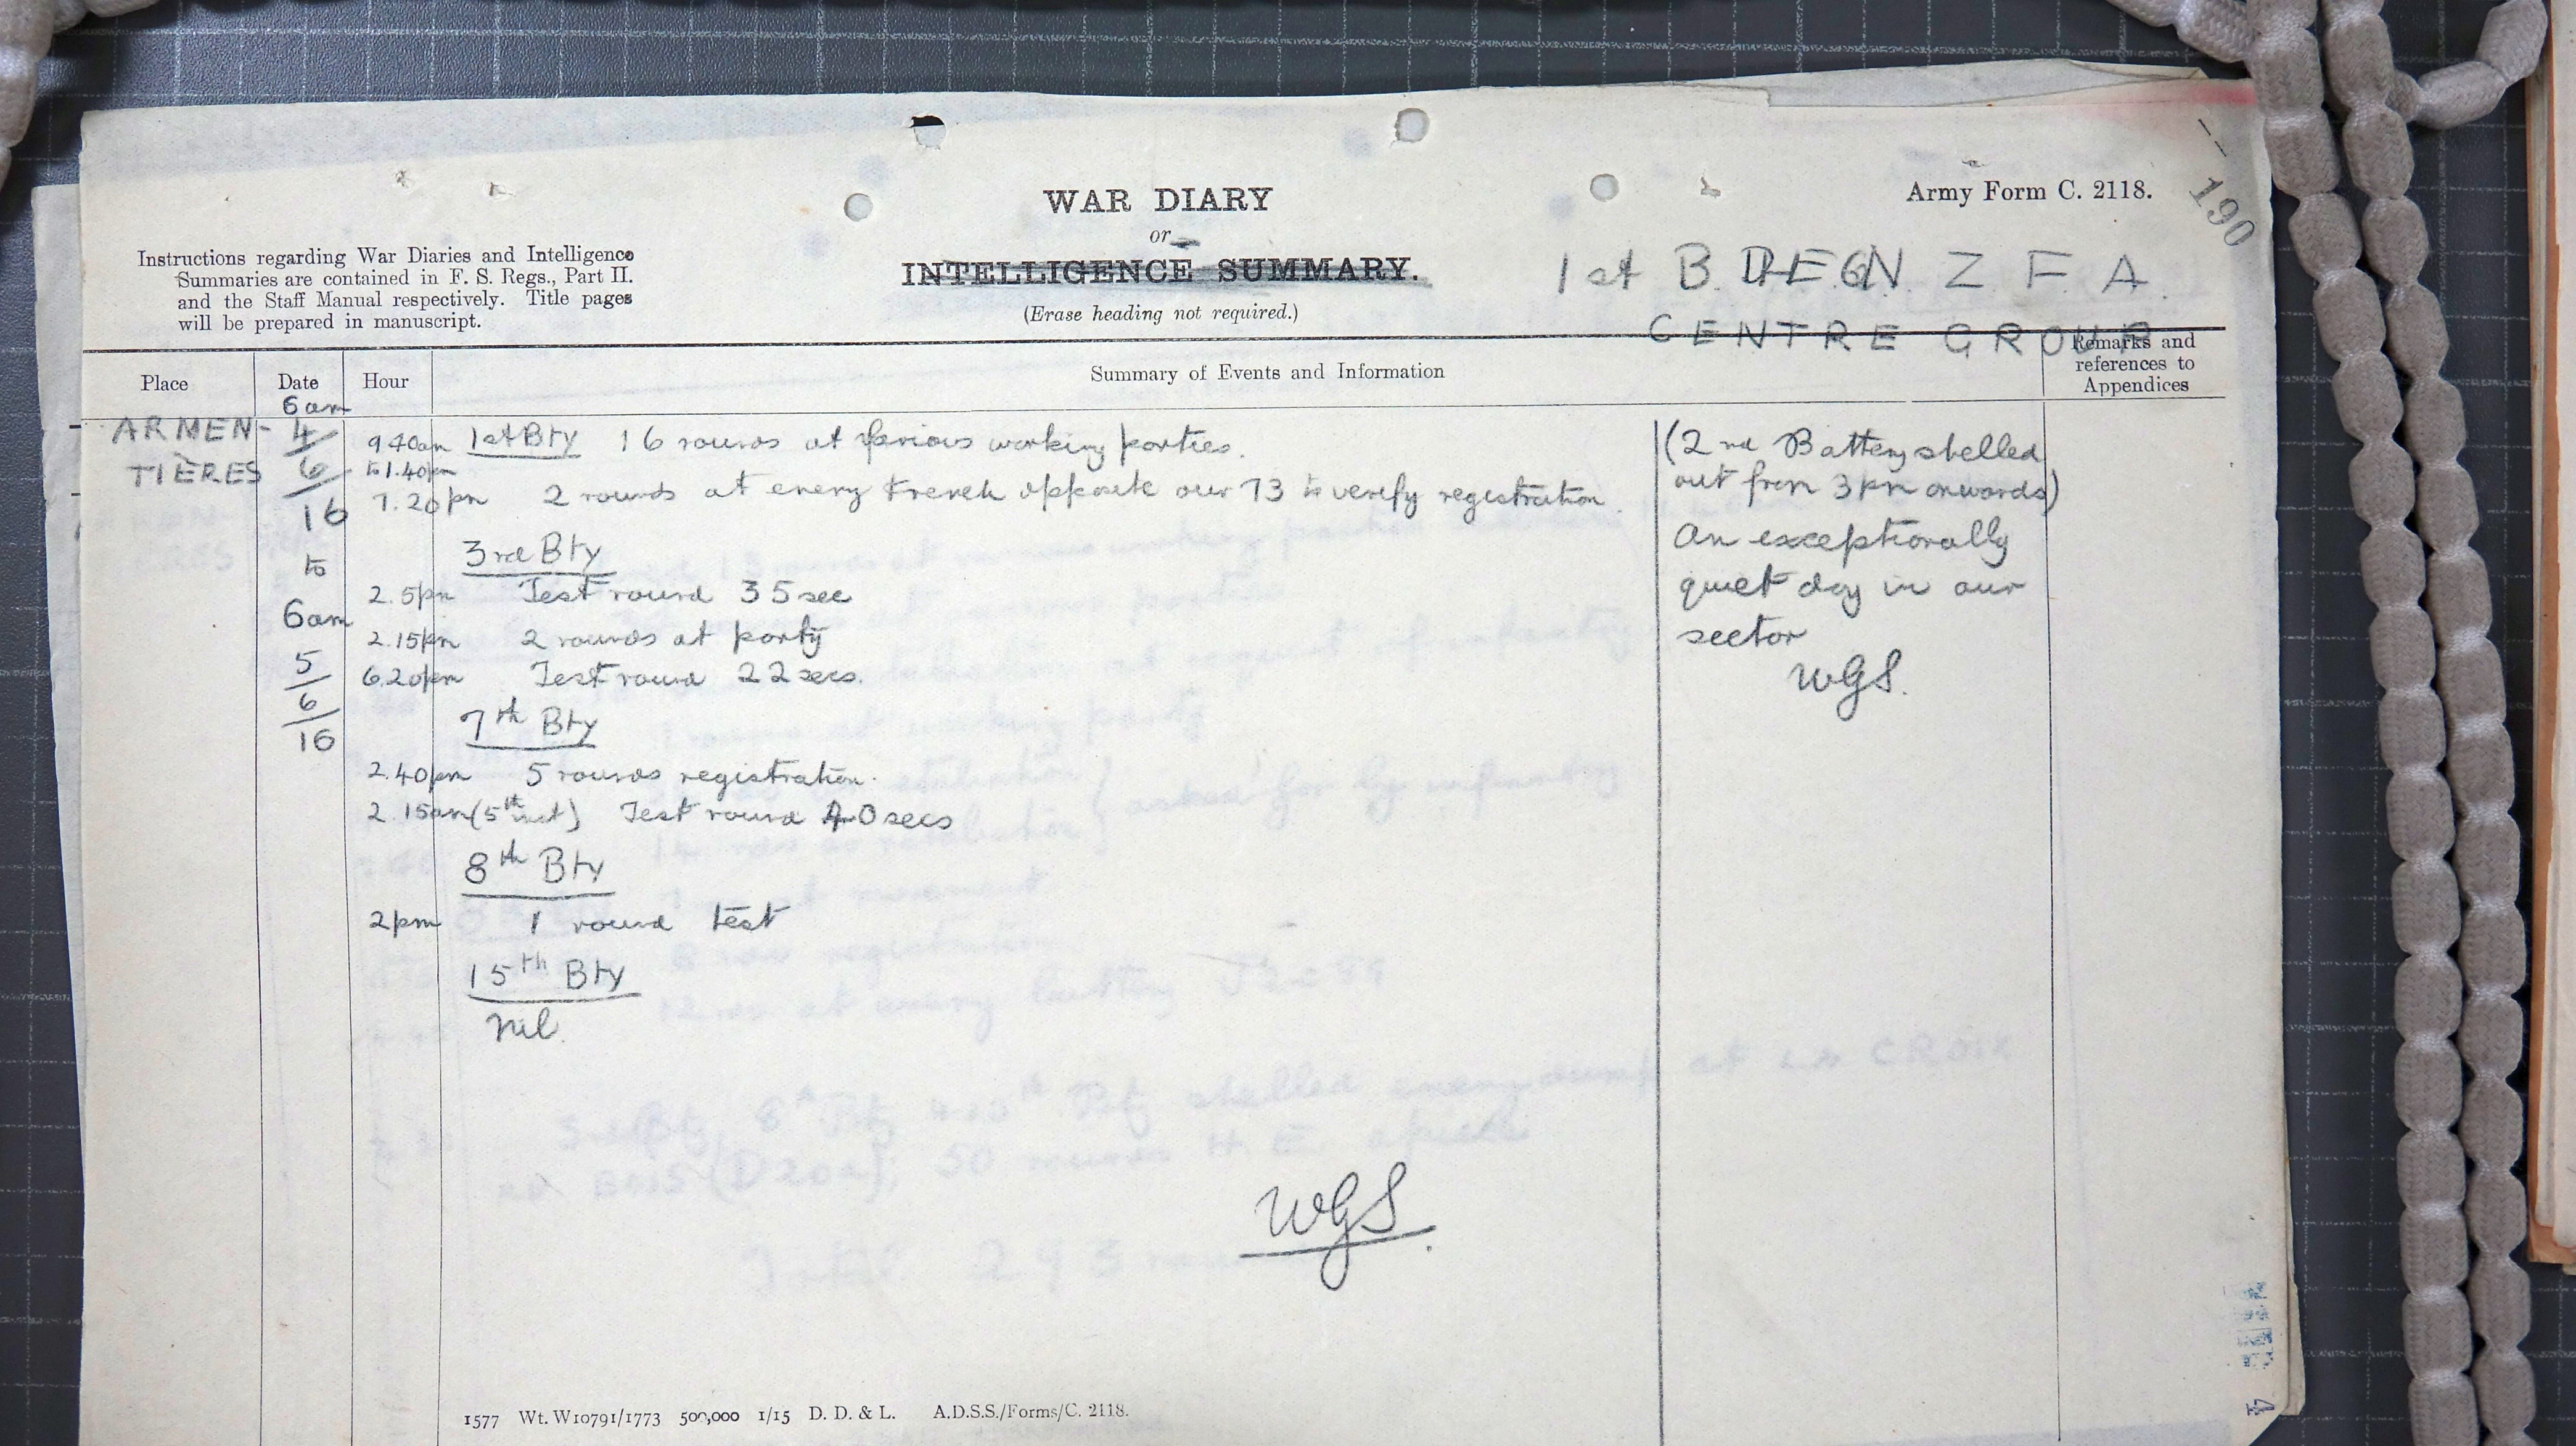 WAR DIARY
or
INTELLIGENCE SUMMARY.
(Erase heading not required.)
Army Form C. 2118.
190
Instructions regarding War Diaries and Intelligence
Summaries are contained in F. S. Regs., Part II.
and the Staff Manual respectively. Title pages
will be prepared in manuscript.
1st B N Z F A.
CENTRE GROUP
Place Date Hour Summary of Events and Information Remarks and
references to
Appendices
6am
ARMEN- 4/6/16 9 40am 1st Bty 16 rounds at various working parties.
TIÈRES to 1.40pm
7.20pm 2 rounds at enemy trench opposite our 73 to verify registration.
3rd Bty
to
2.5pm Test round 35 sec
6am
2.15pm 2 rounds at party
5/6/16 6.20pm Test round 22 secs.
7th Bty
2.40pm 5 rounds registration.
2.15am (5th inst) Test round 40 secs
8th Bty
2pm 1 round test
15th Bty
nil.
(2nd Battery shelled
out from 3 pm onwards)
An exceptionally
quiet day in our
sector
WGS.
WGS.
1577 Wt. W10791/1773 500,000 1/15 D. D. & L. A.D.S.S./Forms/C. 2118.